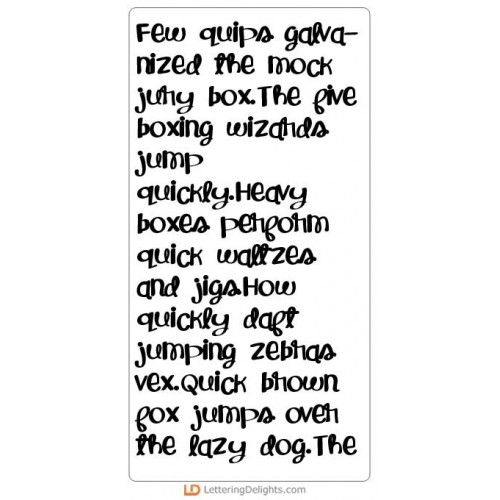 Few quips galva-
nized the mock
jury box.The five
boxing wizards
jump
quickly.Heavy
boxes perform
quick waltzes
and jigs.How
quickly daft
jumping zebras
vex.Quick brown
fox jumps over
the lazy dog.The
LD LetteringDelights.com